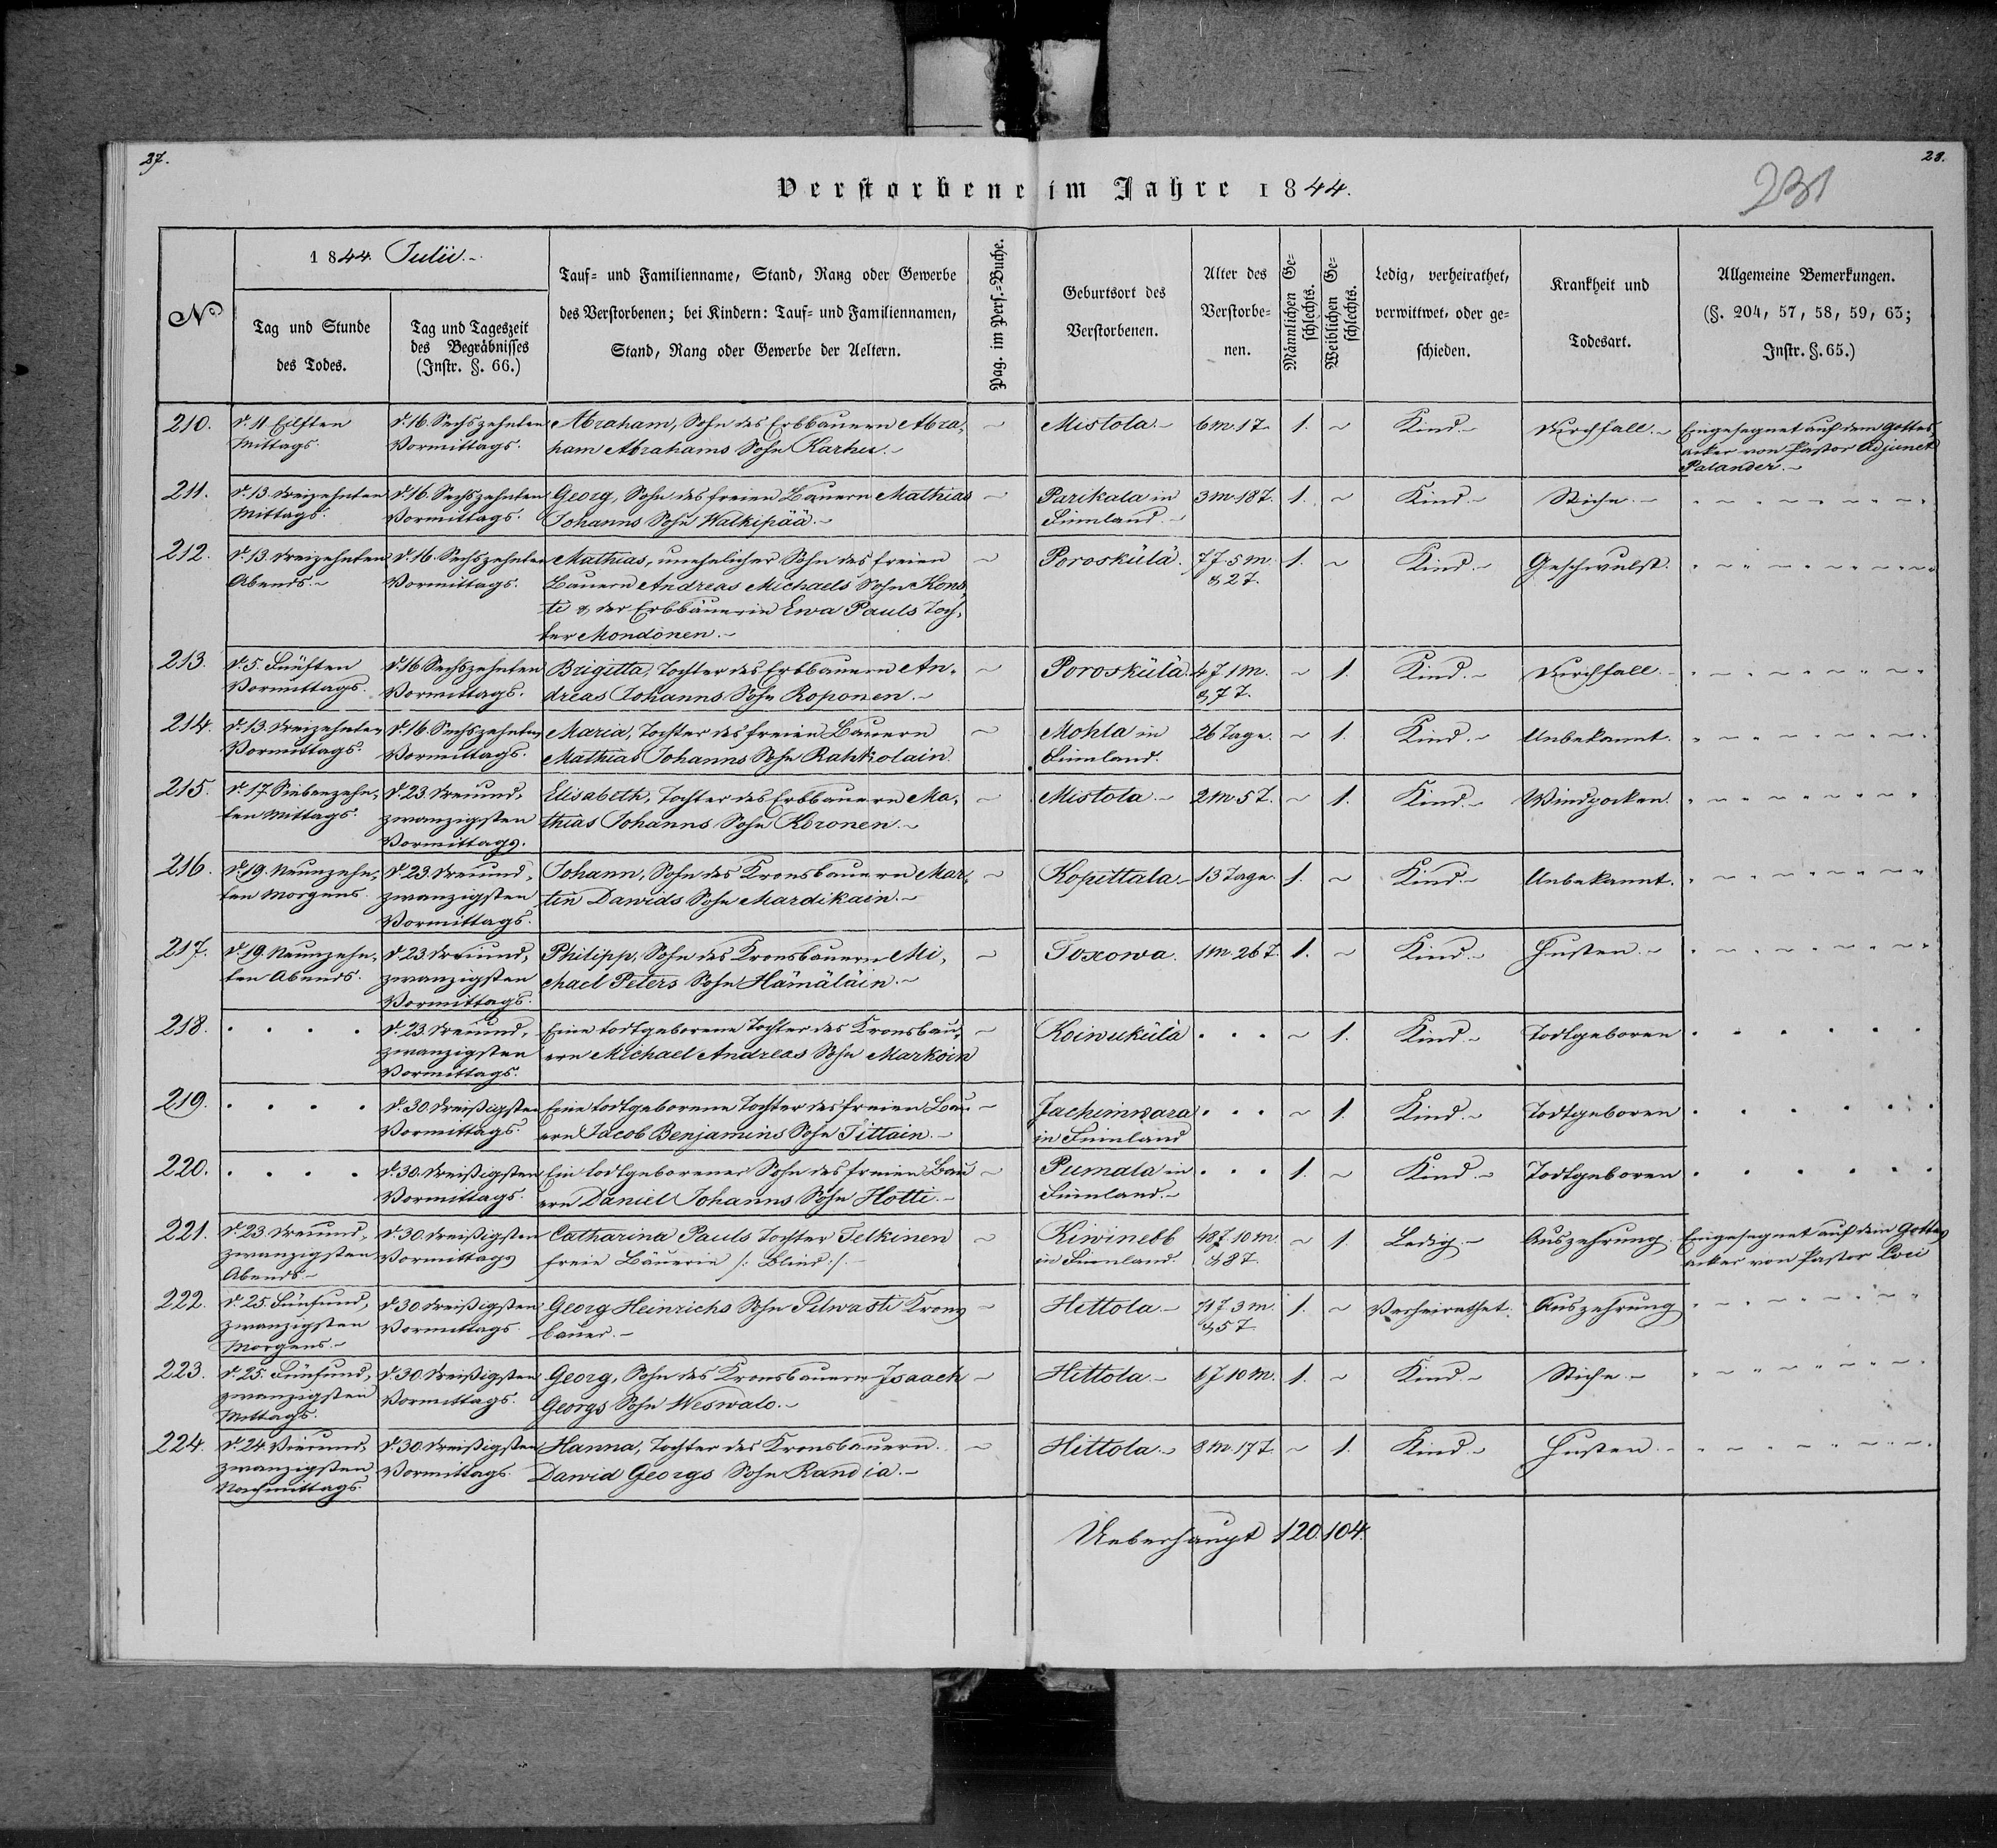 27.
28.
231
Verstorbene im Jahre 1844.
No
1844. Julii.
Tag und Stunde
des Todes.
Tag und Tageszeit
des Begräbnisses
(Instr. §. 66.)
Tauf- und Familienname, Stand, Rang oder Gewerbe
des Verstorbenen; bei Kindern: Tauf- und Familiennamen,
Stand, Rang oder Gewerbe der Aeltern.
Pag. im Pers.-Buche.
Geburtsort des
Verstorbenen.
Alter des
Verstorbe-
nen.
Männlichen Ge-
schlechts.
Weiblichen Ge-
schlechts.
Ledig, verheirathet,
verwittwet, oder ge-
schieden.
Krankheit und
Todesart.
Allgemeine Bemerkungen.
(§. 204, 57, 58, 59, 63;
Instr. §. 65.)
210. d. 11 Eilften d. 16. Sechszehnten Abraham, Sohn des Erbbauern Abra- ~ Mistola.- 6 M 1 T. 1. ~ Kind.- Durchfall.- Eingesegnet auf dem Gottes-
Mittags. Vormittags. ham Abrahams Sohn Karhu.- acker von Pastor Adjunct
Palander.-
211. d. 13. Dreizehnten d. 16. Sechszehnten Georg, Sohn des freien Bauern Mathias ~ Parikala in 3 M 18 T. 1. ~ Kind.- Stiche.-
Mittags. Vormittags. Johanns Sohn Walkipää.- Finnland.-
212. d. 13. Dreizehnten d. 16. Sechszehnten Mathias, unehelicher Sohn des freien ~ Porosküla. 7 J. 5 M. 1. ~ Kind.- Geschwulst.
Abends.- Vormittags. Bauern Andreas Michaels Sohn Kons- & 2 T.
ti & der Erbbäuerin Ewa Pauls Toch-
ter Mondonen.-
213. d. 5. Fünften d. 16 Sechszehnten Brigitta, Tochter des Erbbauern An- ~ Porosküla. 4 J 1 M. ~ 1. Kind.- Durchfall.-
Vormittags. Vormittags. dreas Johanns Sohn Roponen.- & 7 T.
214. d. 13. Dreizehnten d. 16. Sechszehnten Maria, Tochter des freien Bauern ~ Mohla in 26 Tage. ~ 1. Kind.- Unbekannt.
Vormittags. Vormittags. Mathias Johanns Sohn Rahkolain. Finnland.
215. d. 17. Siebenzehn- d. 23 Dreiund- Elisabeth, Tochter des Erbbauern Ma- ~ Mistola.- 2 M 5 T. ~ 1. Kind.- Windpocken.
ten Mittags. zwanzigsten thias Johanns Sohn Koronen.-
Vormittags.
216. d. 19. Neunzehn- d. 23. Dreiund- Johann, Sohn des Kronsbauern Mar- ~ Kopittala.- 13 Tage. 1. ~ Kind.- Unbekannt.
ten Morgens. zwanzigsten tin Dawids Sohn Mardikain.-
Vormittags.
217. d. 19. Neunzehn- d. 23. Dreiund- Philipp, Sohn des Kronsbauern Mi- ~ Toxowa. 1 M 26 T. 1. ~ Kind.- Husten.-
ten Abends. zwanzigsten chael Peters Sohn Hämäläin.-
Vormittags.
218. . . . . d. 23. Dreiund- Eine todtgeborene Tochter des Kronsbau- ~ Koiwuküla . . . ~ 1. Kind.- Todtgeboren . . . . . .
zwanzigsten ern Michael Andreas Sohn Markoin
Vormittags.
219. . . . . d. 30 Dreißigsten Eine todtgeborene Tochter des freien Bau- ~ Jachimwara . . . ~ 1. Kind.- Todtgeboren . . . . . .
Vormittags. ern Jacob Benjamins Sohn Tittain.- in Finnland
220. . . . . d. 30. Dreißigsten Ein todtgeborener Sohn des freien Bau- ~ Pumala in . . . 1. ~ Kind.- Todtgeboren . . . . . .
Vormittags. ern Daniel Johanns Sohn Hotti.- Finnland.-
221. d. 23. Dreiund- d. 30. Dreißigsten Catharina Pauls Tochter Telkinen ~ Kiwinebb 48 J. 10 M. ~ 1 Ledig.- Auszehrung. Eingesegnet auf dem Gottes
zwanzigsten Vormittags freie Bäuerin /: Blind :/.- in Finnland. & 8 T. acker von Pastor
Abends.-
222. d. 25. Fünfund- d. 30 Dreißigsten Georg Heinrichs Sohn Silwasti Krons ~ Hittola.- 71 J. 3 M. 1. ~ Verheirathet. Auszehrung
zwanzigsten Vormittags. bauer.- & 5 T.
Morgens.-
223. d. 25. Fünfund- d. 30. Dreißigsten Georg, Sohn des Kronsbauern Isaack ~ Hittola.- 1 J 10 M. 1. ~ Kind.- Stiche.-
zwanzigsten Vormittags. Georgs Sohn Weswalo.-
Mittags.
224. d. 24. Vierund- d. 30. Dreißigsten Hanna, Tochter des Kronsbauern ~ Hittola.- 8 M. 17 T. ~ 1. Kind.- Husten.-
zwanzigsten Vormittags. Dawid Georgs Sohn Randia.-
Nachmittags.
Ueberhaupt 120. 104.